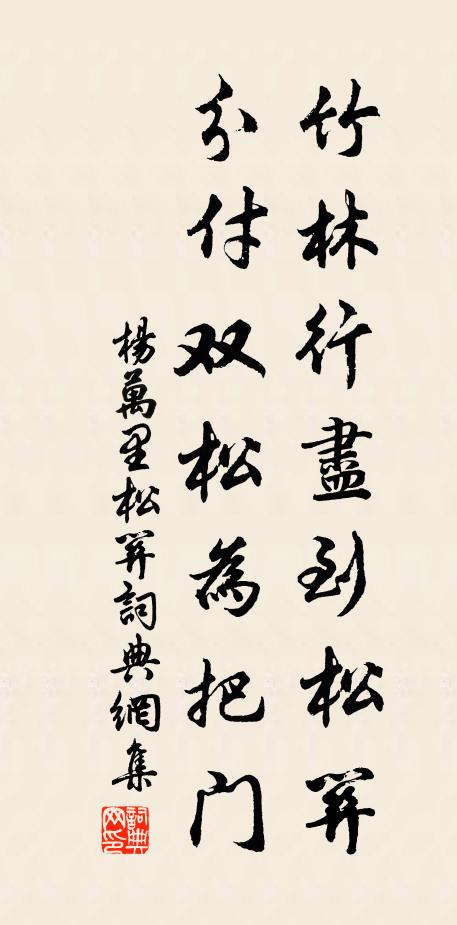 竹林行盡到松關
分付双松為把门
楊萬里松關詞典網集
詞典网印